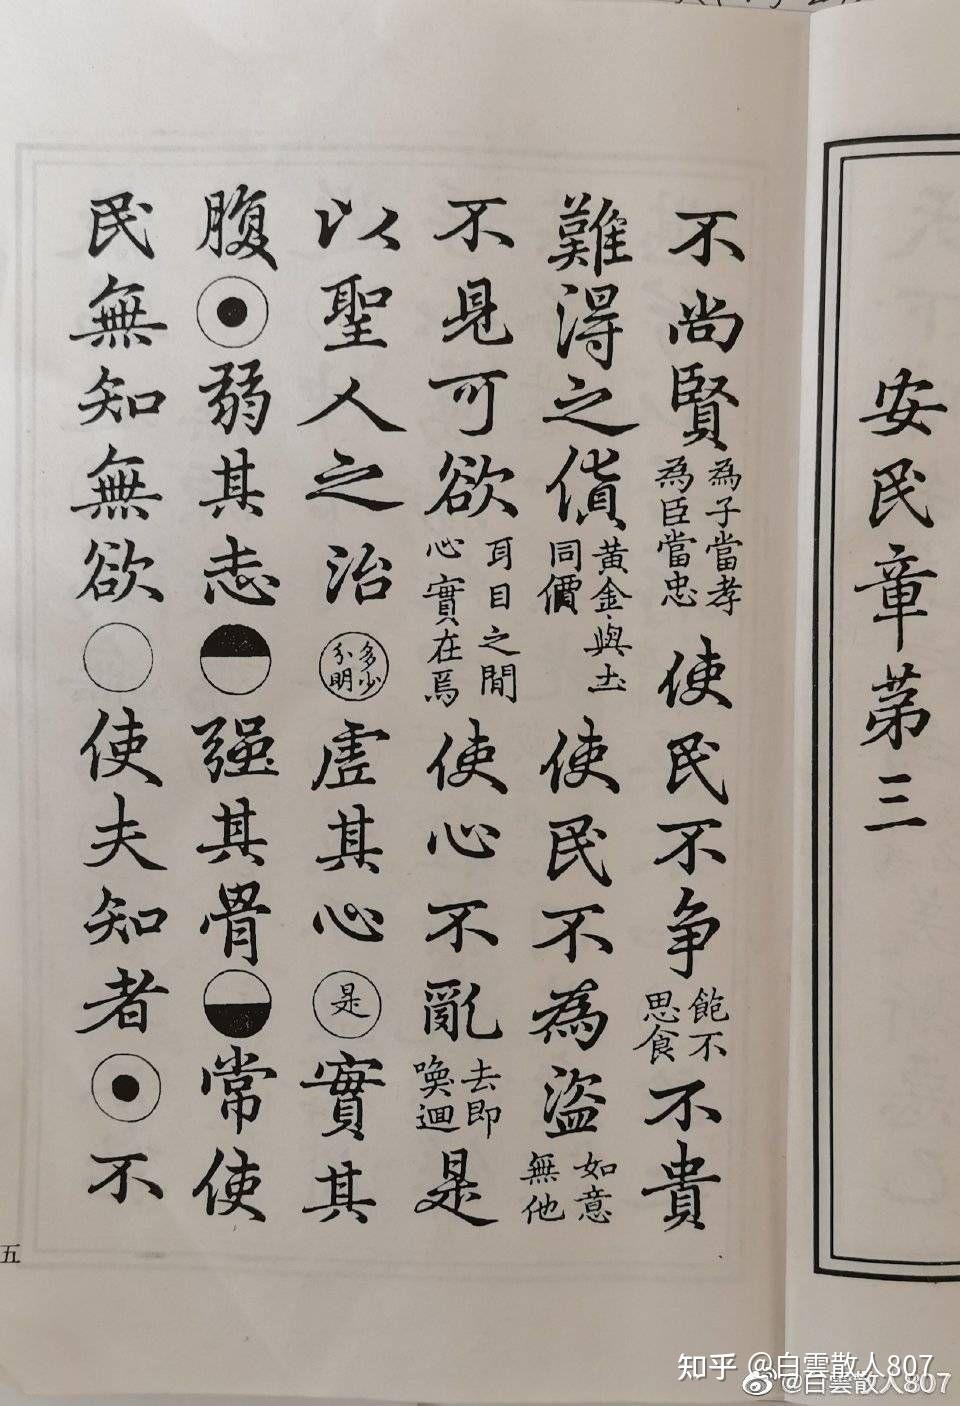 安民章第三
不尚賢為子當孝為臣當忠使民不爭飽不思食不貴
難得之貨黃金與土同價使民不為盜如意無他
不見可欲耳目之間心實在焉使心不亂去即喚迴是
以聖人之治多少分明虛其心是實其
腹弱其志强其骨常使
民無知無欲使夫知者不
五
知乎 @白雲散人807
@白雲散人807